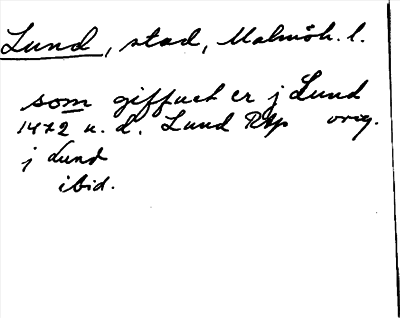 Lund, stad, Malmöh. l.
som giffuet er j Lund
1472 u. d. Lund Rap orig.
j Lund
ibid.